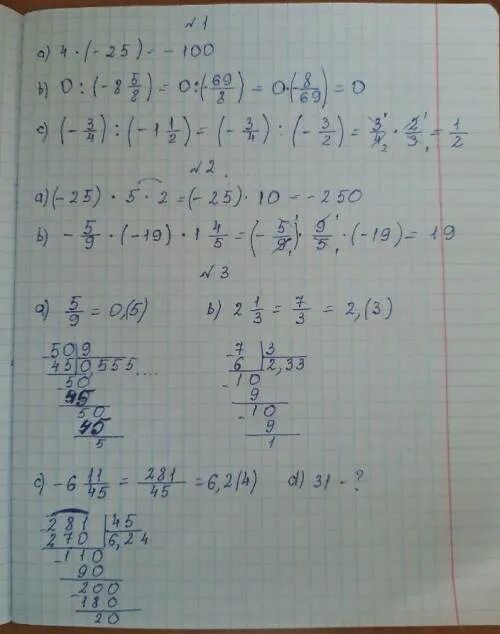 №1
a) 4 · (-25) = -100
b) 0 : (-8 5/8) = 0 : (-69/8) = 0 · (-8/69) = 0
c) (-3/4) : (-1 1/2) = (-3/4) : (-3/2) = 3/4 · 2/3 = 1/2
№2.
a) (-25) · 5 · 2 = (-25) · 10 = -250
b) -5/9 · (-19) · 1 4/5 = (-5/9) · 9/5 · (-19) = 19
№3
a) 5/9 = 0,(5) b) 2 1/3 = 7/3 = 2,(3)
-50 9 -7 3
45 0,555.... 6 2,33
-50 -10
45 9
50 -10
45 9
5 1
c) -6 11/45 = 281/45 = 6,2(4) d) 31 - ?
-281 45
270 6,24
-110
90
-200
180
20